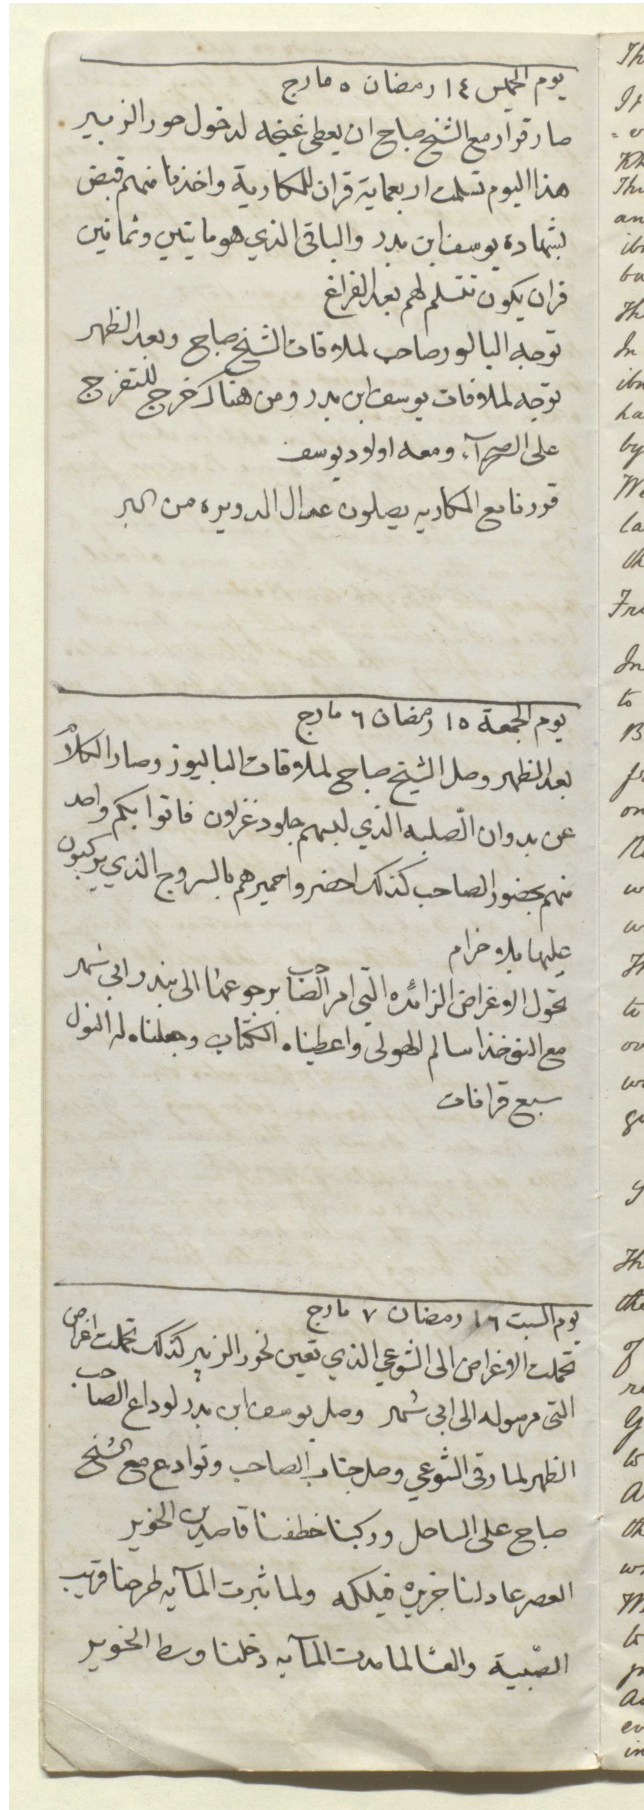 يوم الخميس ١٤ رمضان ٥ مارج
صار قرار مع الشيخ صباح ان يعطي لدخول خور الزبير
هذا اليوم تسلمت اربعماية قران للمكارية واخذنا منهم قبض
بشهادة يوسف ابن بدر والباقي الذي هو مايتين وثمانين
قران يكون نتسلم لهم بعد الفراغ
توجه الباليوز صاحب لملاقات الشيخ صباح وبعد الظهر
توجه لملاقات يوسف ابن بدر ومن هناك خرج للتفرج
على الصحرآء ومعه اولاود يوسف
قررنا مع المكاريه يصلون عدال الدويره من البر
يوم الجمعة ١٥ رمضان ٦ مارج
بعد الظهر وصل الشيخ صباح لملاقات الباليوز وصار الكلام
عن بدوان الصلبه الذي لبسهم جلود غزلان فاتوا بكم واحد
منهم بحضور الصاحب كذلك احضروا حميرهم بالسروج الذي يركبون
عليها بلا خزام
تحول الاغراض الزائده التي امر الصاحب برجوعها الى بندر ابي شهر
مع النوخذا سالم الهولي واعطيناه الكتاب وجعلنا له النول
سبع قرانات
يوم السبت ١٦ رمضان ٧ مارج
تحملت الاغراض الى الشوعي الذي تعين لخور الزبير كذلك تحملت اغراض
التي مرسوله الى ابي شهر وصل يوسف ابن بدر لوداع الصاحب
الظهر لما رقى الشوعي وصل جناب الصاحب وتوادع مع الشيخ
صباح على الساحل وركبنا خطفنا قاصدين الخوير
العصر عادلنا جزيره فيلكه ولما ثبرت المآيه طرحنا قريب
الصبية والعشا لما مدت المآيه دخلنا وسط الخوير